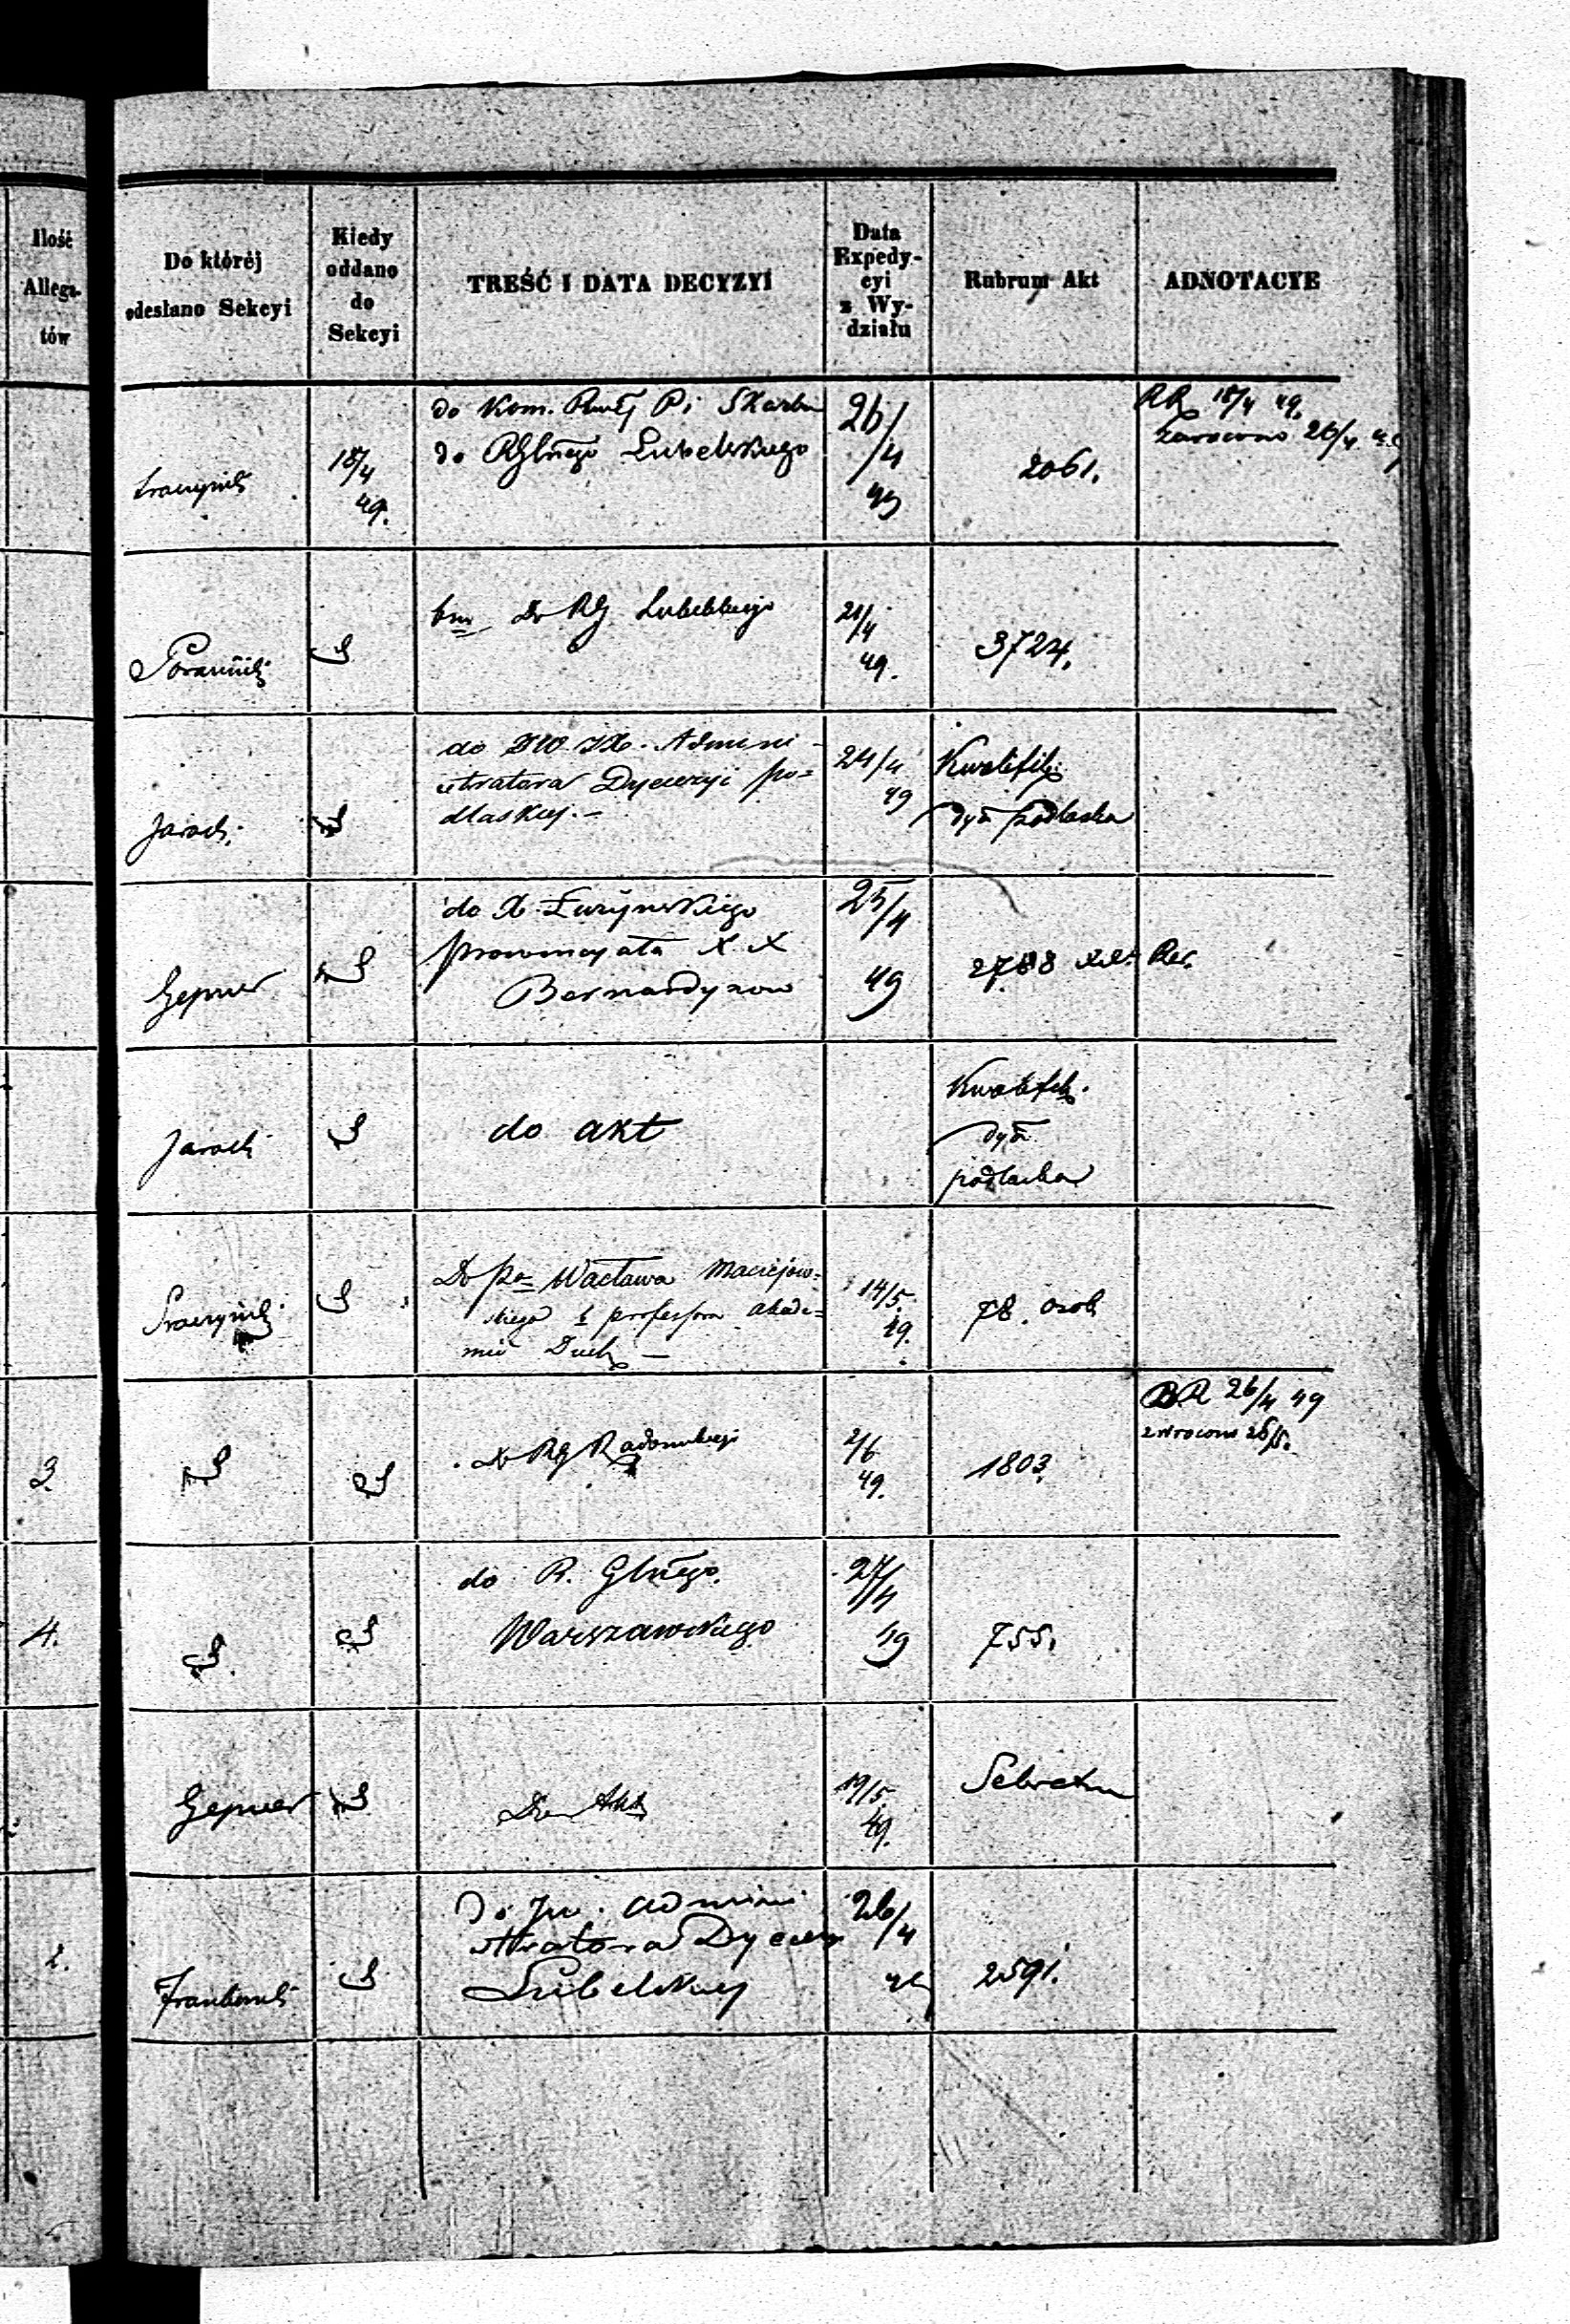 Ilość
Allega-
tów
Do któréj
odesłano Sekcyi
Kiedy
oddano
do
Sekcyi
TREŚĆ I DATA DECYZYI
Data
Expedy-
cyi
z Wy-
działu
Rubrum Akt
ADNOTACYE
18/4
49.
do Kom. P i Skarbu
do RGlnego Lubelskiego
26/4
49
2061.
RR 18/4 49.
zwrocono 26/4
do RG Lubelskiego
21/4
49.
3724.
Jaroch.
do JW JX. Admini-
stratora Dyecezyi Po-
dlaskiej.-
24/4
49
Kwalifik.
dya podlaska
Gepner
do X. Łuzynskiego
Prowincyała X.X
Bernardynow
25/4
49
2788 Rer.
Jaroch
do akt
Kwalifik.
dya
podlaska
Do Pa Wacława Maciejow-
skiego b professora Akade-
mii Duch
14/5.
49.
78. osob
3.
do RG Radomskiego
2/6
49.
1803.
BR 26/4 49
zwrocono 25/5.
4.
do R. Glnego
Warszawskiego
27/4
49
755.
Gepner
Do Akt
19/5
49.
Sekretne
2.
Do JW. Admini
stratora Dyecezyi
Lubelskiej
26/4
49
2591.